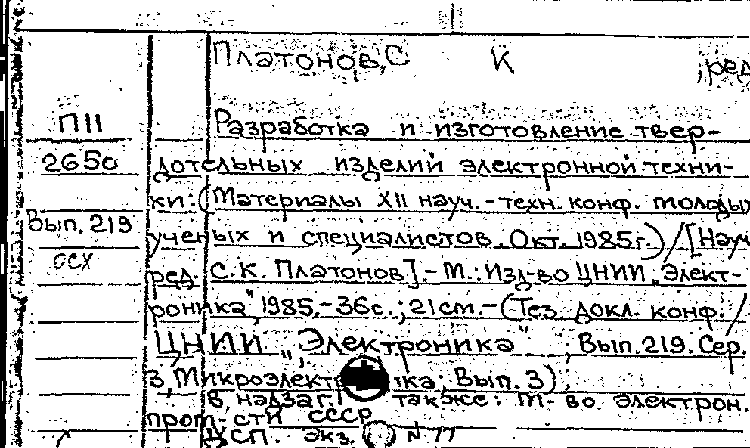 Платонов, С К , ред
П11 Разработка и изготовление твер-
2650 дотельных изделий электронной техни-
ки: (Материалы XII науч.-техн. конф. молодых
Вып. 219 ученых и специалистов. Окт. 1985г.) / [Науч
ОСХ ред. С.К. Платонов]. - М.: Изд-во ЦНИИ „Элект-
роника", 1985. - 36с.; 21см. - (Тез. докл. конф. /
ЦНИИ „Электроника" ; Вып. 219. Сер.
3, Микроэлектроника, Вып. 3)
В надзаг. также: М-во электрон.
пром-сти СССР
ДСП. экз. N 77